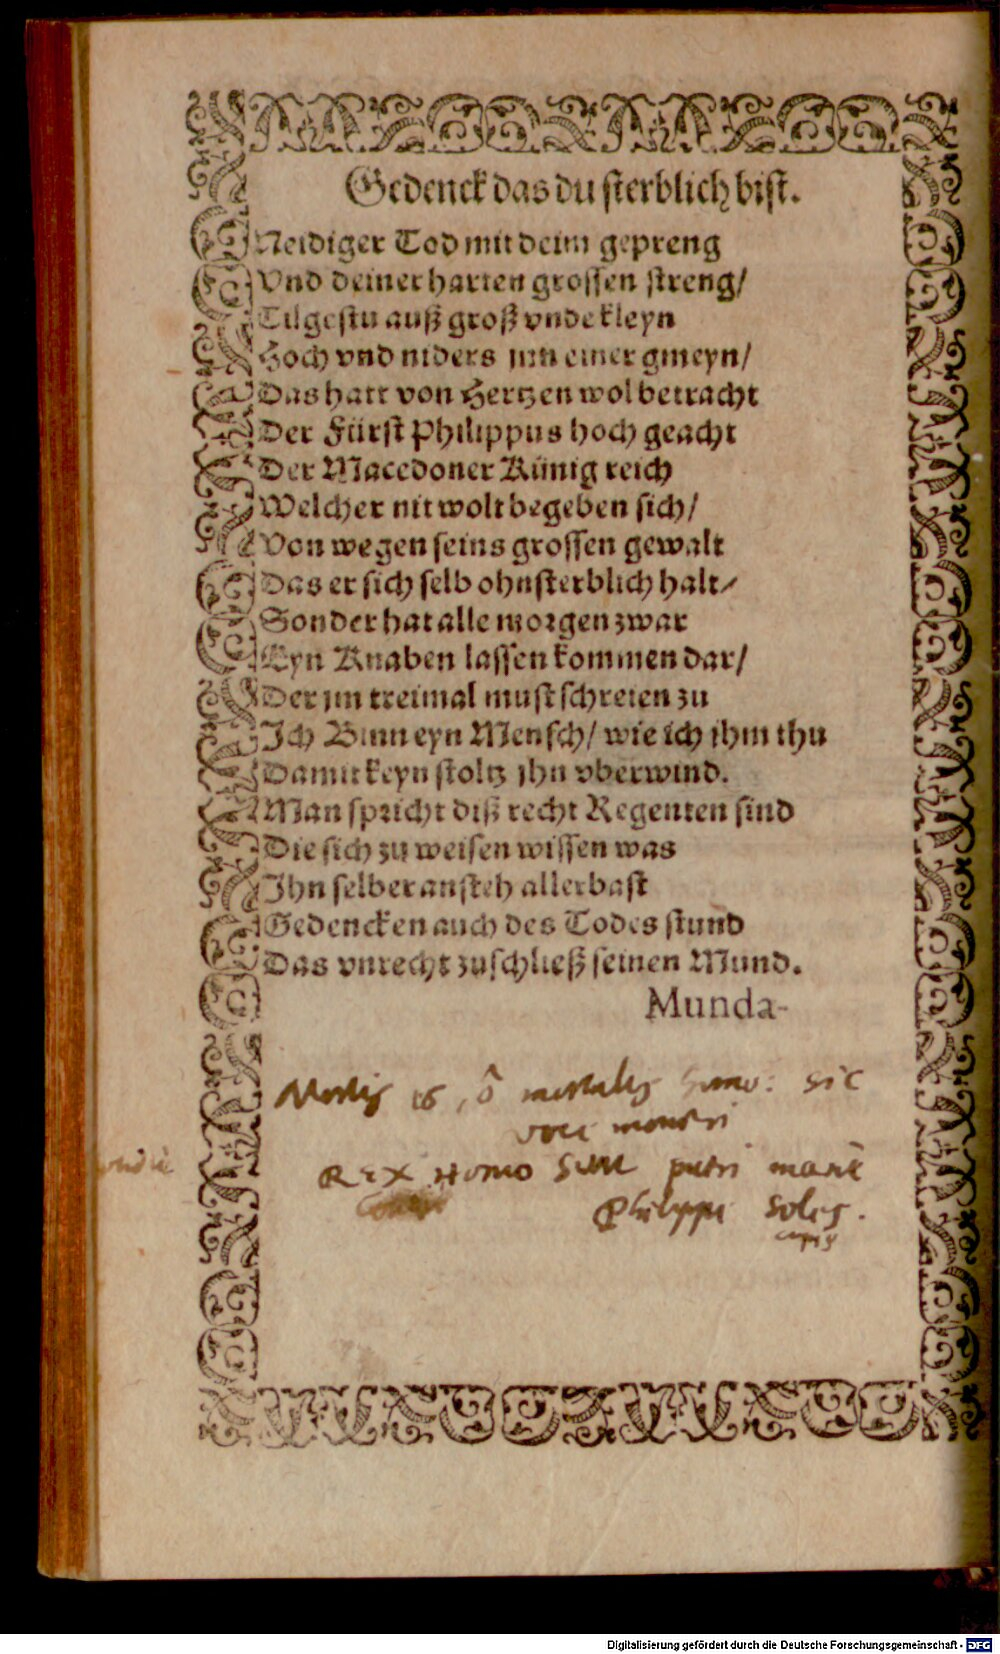 Gedenck das du sterblich bist.
Neidiger Tod mit deim gepreng
Vnd deiner harten grossen streng/
Tilgestu auß groß vnde kleyn
Hoch vnd niders jnn einer gmeyn/
Das hatt von Hertzen wol betracht
Der Fürst Philippus hoch geacht
Der Macedoner Künig reich
Welcher nit wolt begeben sich/
Von wegen seins grossen gewalt
Das er sich selb ohnsterblich halt/
Sonder hat alle morgen zwar
Eyn Knaben lassen kommen dar/
Der jm treimal must schreien zu
Ich Binn eyn Mensch/ wie ich jhm thu
Damit keyn stoltz jhn vberwind.
Man spricht diß recht Regenten sind
Die sich zu weisen wissen was
Ihn selber ansteh allerbast
Gedencken auch des Todes stund
Das vnrecht zuschließ seinen Mund.
Munda-
es, ô mortalis homo: sic
voce moneri
REX HOMO SUM pueri mane
Philippe soles.
cupis
Digitalisierung gefördert durch die Deutsche Forschungsgemeinschaft - DFG